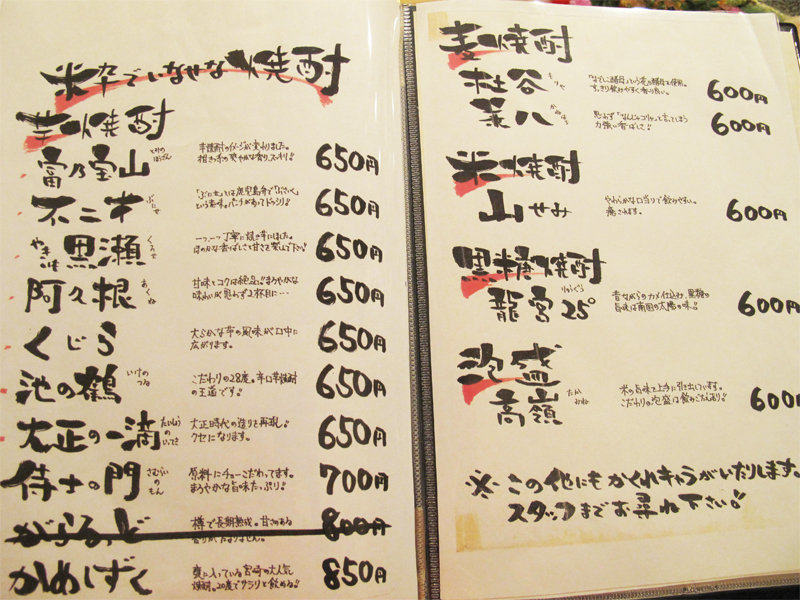 米卆でいなせな焼酎
芋焼酎
富乃宝山 とみのほうざん
芋焼酎のイメージが変わりました。
柑きつ系の爽やかな香り。スッキリ!
650円
不二才 ぶにせ
という意味。パンチがあってドッシリ!
650円
やき芋黒瀬 くろせ
一つ一つ丁寧に焼き芋にしました。
ほのかな香ばしさと甘さを楽しんで下さい
650円
阿久根 あくね
甘味とコクは絶品!まろやかな
味わいが思わず2杯目に…
650円
くじら
大らかな芋の風味が口中に
広がります。
650円
池の鶴 いけのつる
こだわりの28度。辛口芋焼酎
の王道です!
650円
大正の一滴 たいしょうのいってき
大正時代の造りを再現!
クセになります。
650円
侍士の門 さむらいのもん
原料にチョーこだわってます。
まろやかな旨味たっぷり!
700円
がらるっど
樽で長期熟成。甘さのある
香りがたまりません。
800円
かめしずく
甕に入っている宮崎の大人気
焼酎。20度でサラリと飲める!
850円
麦焼酎
杜谷 もりや
「なでしこ酵母」という花の酵母を使用。
すっきり飲みやすく香り高い。
600円
兼八 かねはち
思わず「なんじゃコリャ」と言ってしまう
力強い香ばしさ!
600円
米焼酎
山せみ
やわらかな口当りで飲みやすい。
癒されます。
600円
黒糖焼酎
龍宮25° りゅうぐう
昔ながらのカメ仕込み。黒糖の
旨味は南国の太陽の味!
600円
泡盛
高嶺 たかみね
米の旨味を上手に引き出しています。
こだわりの泡盛は飲めごたえあり!
600円
※この他にもかくれキャラがいたりします。
スタッフまでお尋ね下さい!